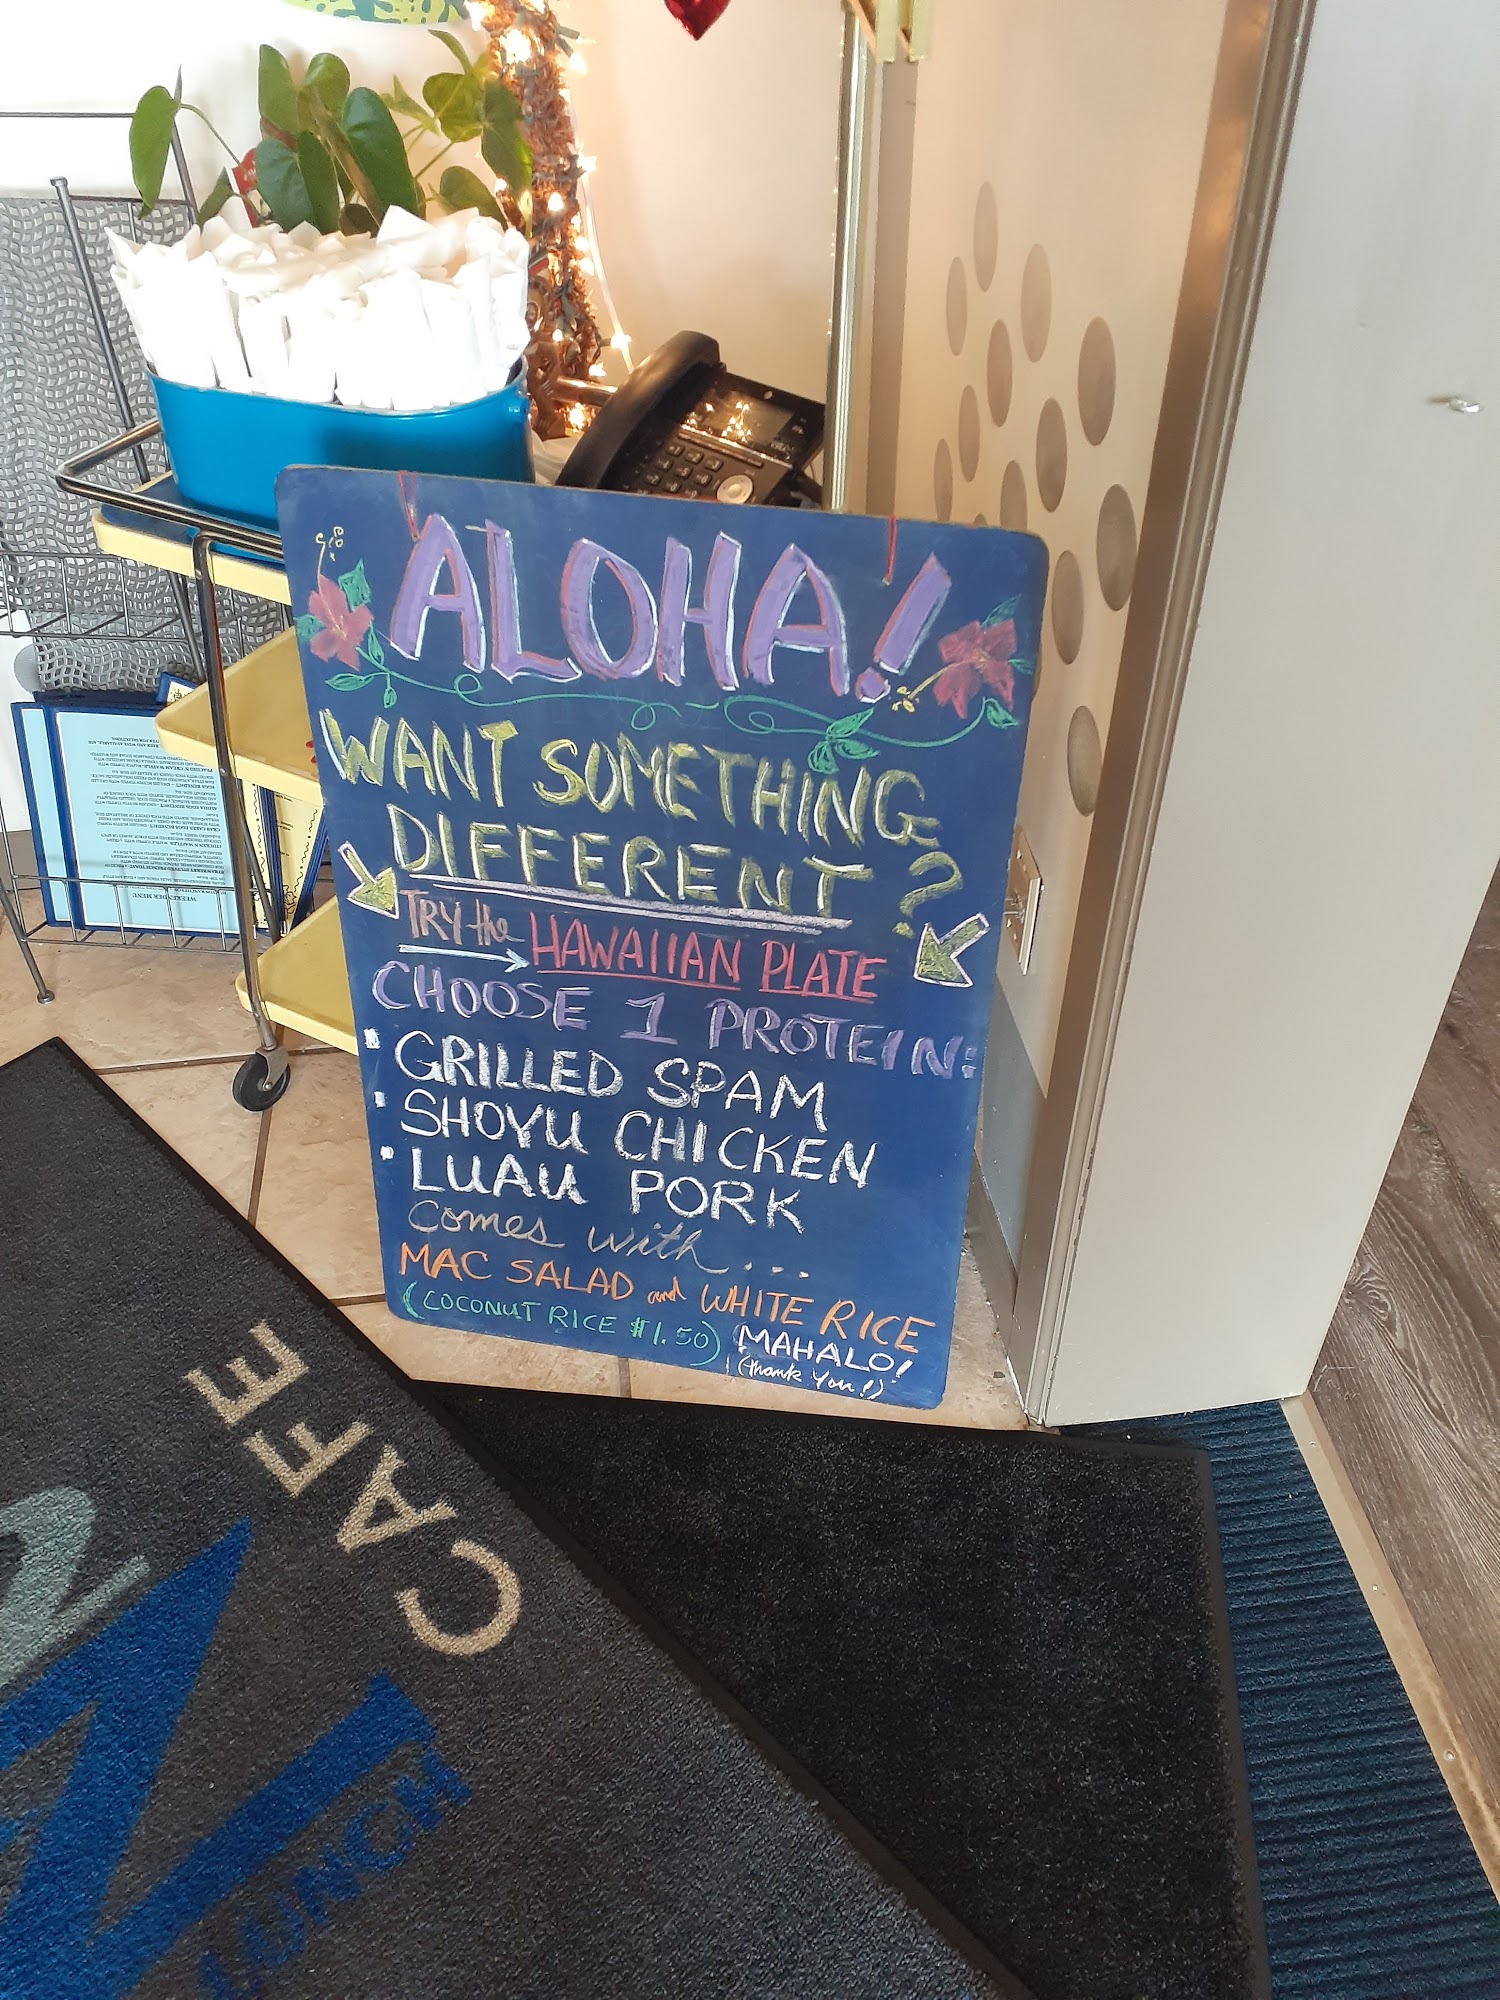 ALOHA!
WANT SOMETHING
DIFFERENT?
TRY the HAWAIIAN PLATE
CHOOSE 1 PROTEIN:
GRILLED SPAM
SHOYU CHICKEN
LUAU PORK
Comes with...
MAC SALAD and WHITE RICE
(COCONUT RICE $1.50)
MAHALO!
(thank you!)
WEEKENDER MENU
CAFE
LUNCH